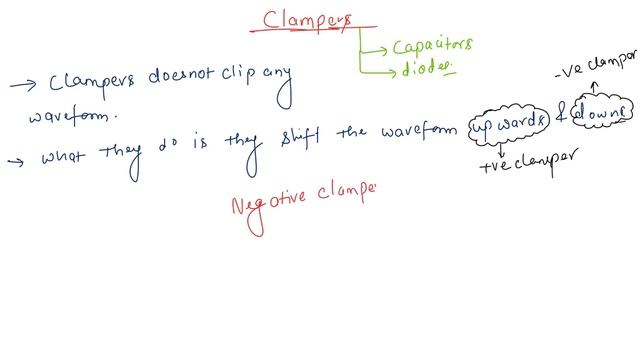 Clampers
→ Capacitors
→ diodes
→ Clampers doesnot clip any
waveform.
-ve clamper
→ what they do is they shift the waveform upwards & downs
+ve clamper
Negative clampe